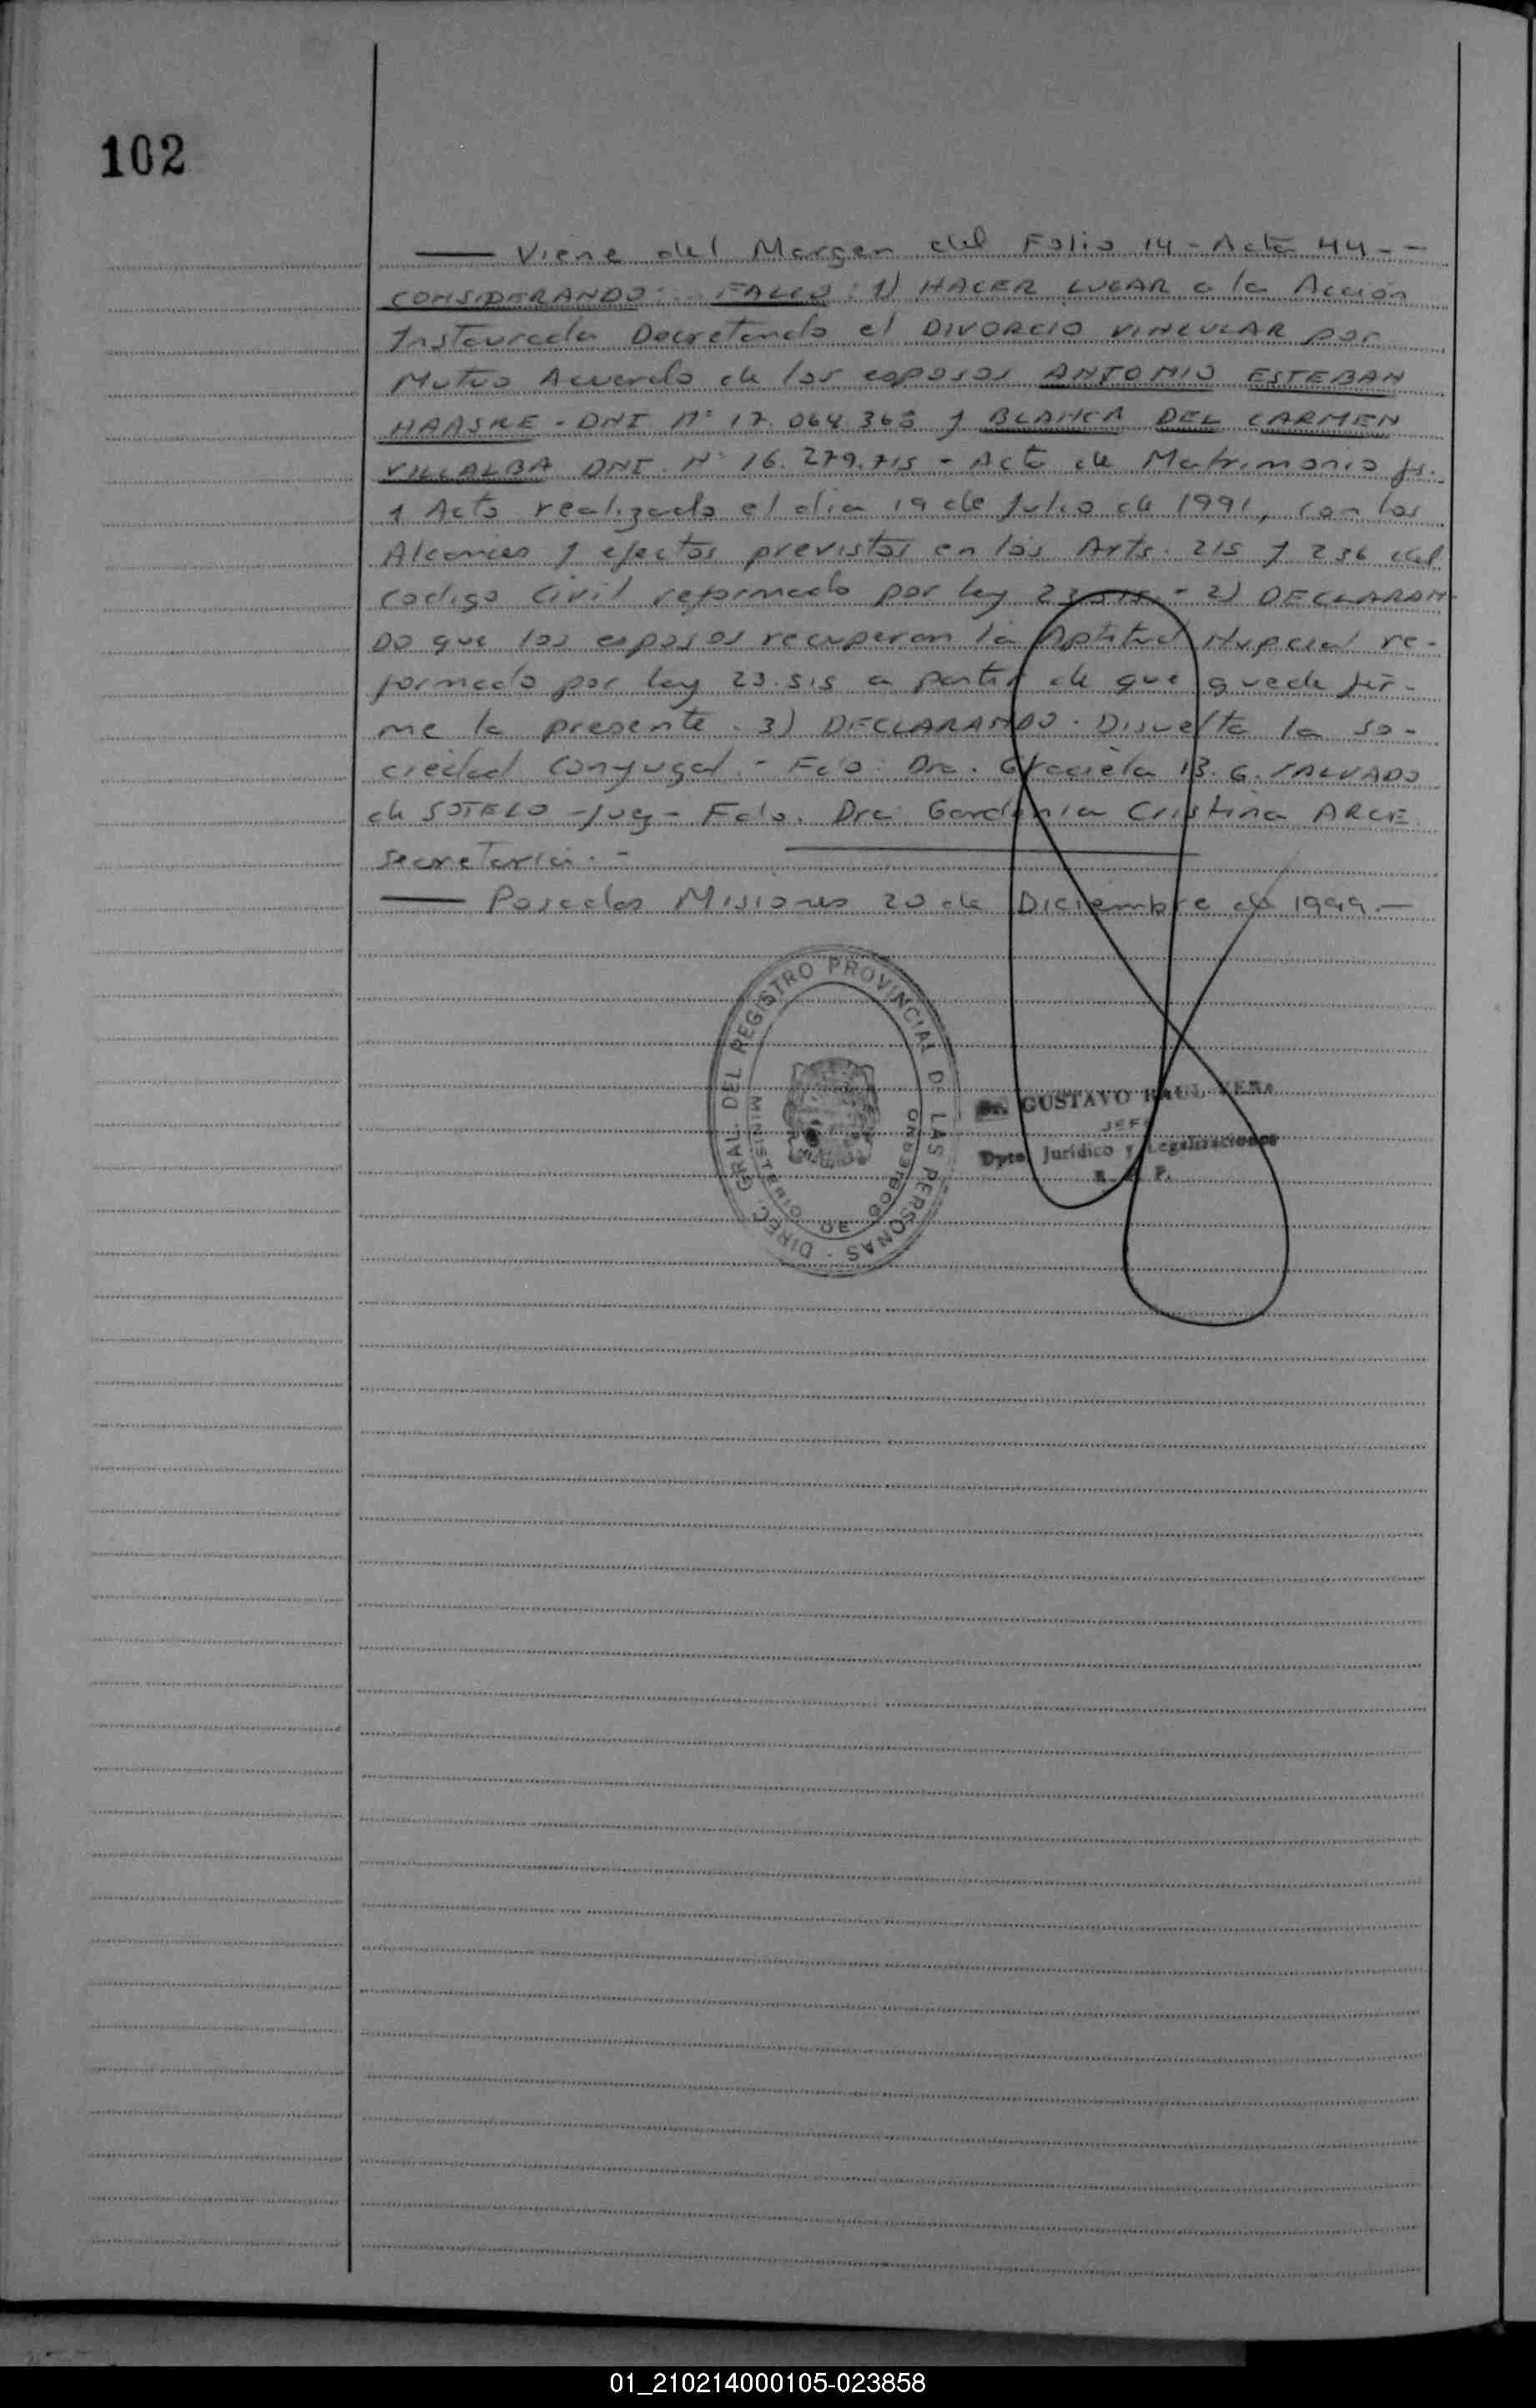 102
Viene del Margen del Folio 14 - Acta 44 - -
CONSIDERANDO: FALLO: 1) HACER LUGAR a la Acción
Instaurada Decretando el DIVORCIO VINCULAR por
Mutuo Acuerdo de los esposos ANTONIO ESTEBAN
HAASRE - DNI Nº 17.064.365 y BLANCA DEL CARMEN
VILLALBA DNI. Nº 16.279.715 - Acta de Matrimonio fs.
1 Acto realizado el dia 19 de Julio de 1991, con los
Alcances y efectos previstos en los Arts. 215 y 236 del
codigo Civil reformado por ley 23.515. - 2) DECLARAN-
DO que los esposos recuperan la Aptitud Nupcial re-
formado por ley 23.515 a partir de que quede fir-
me la presente. 3) DECLARANDO. Disuelta la so-
ciedad conyugal. - Fdo: Dra. Graciela B. G. SALVADO
de SOTELO - Juez - Fdo. Dra. Gardenia Cristina ARCE
secretaria. -
Posadas Misiones 20 de Diciembre de 1999. -
DIREC. GRAL. DEL REGISTRO PROVINCIAL DE LAS PERSONAS -
MINISTERIO DE GOBIERNO
Dr. GUSTAVO RAUL VERA
JEFE
Dpto. Jurídico y Legalizaciones
R. P. P.
01_210214000105-023858